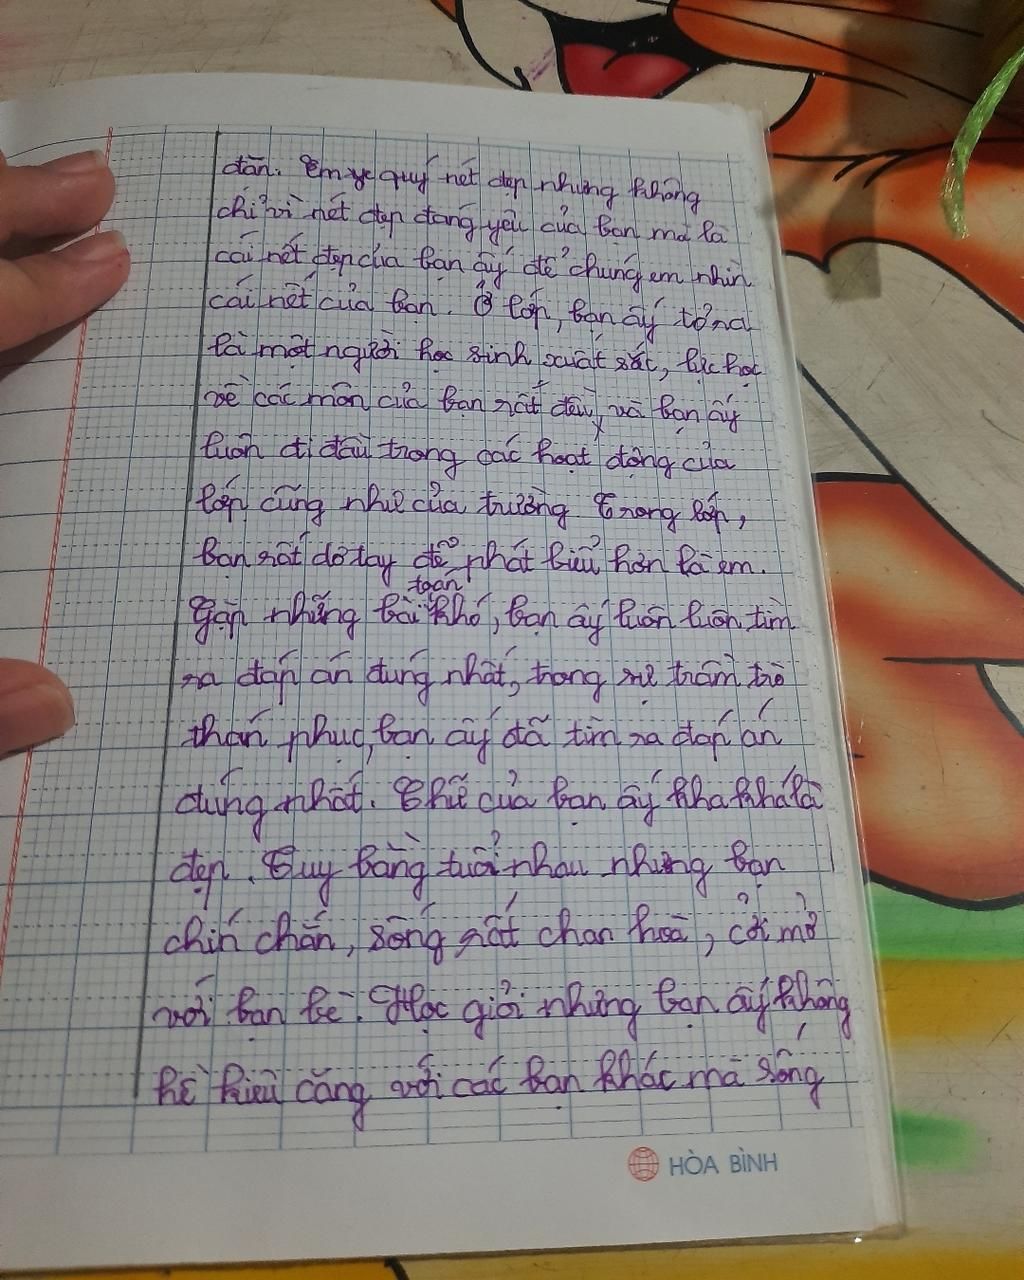 dãn. Em yê quý nét đẹp nhưng không
chỉ vì nét đẹp đáng yêu của bạn mà là
cái nết đẹp của bạn ấy để chúng em nhìn
cái nết của bạn. Ở lớp, bạn ấy tỏ ra
là một người học sinh xuất sắc, lực học
về các môn của bạn rất đều, và bạn ấy
luôn đi đầu trong các hoạt động của
lớp cũng như của trường. Trong lớp,
bạn rất dơ tay để phát biểu hơn là em.
Gặp những bài toán khó, bạn ấy luôn luôn tìm
ra đáp án đúng nhất, trong sự trầm trồ
thán phục, bạn ấy đã tìm ra đáp án
đúng nhất. Chữ của bạn ấy kha khá là
đẹp. Tuy bằng tuổi nhau nhưng bạn
chín chắn, sống rất chan hoà, cởi mở
với bạn bè. Học giỏi nhưng bạn ấy không
hề kiêu căng với các bạn khác mà sống
HÒA BÌNH